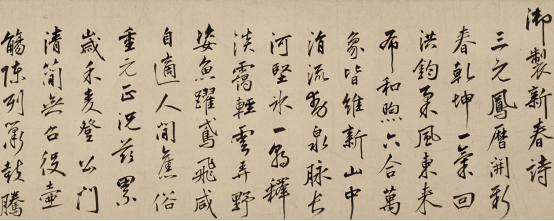 御製新春詩
三元鳳曆開新
春乾坤一氣回
洪鈞柔風東來
布和煦六合萬
象皆維新山中
涓流動泉脈長
河堅氷一朝釋
淡靄輕雲弄野
姿魚躍鳶飛咸
自適人間舊俗
重元正況茲累
歲禾麥登公門
清簡無召役壺
觴陳列簫鼓騰